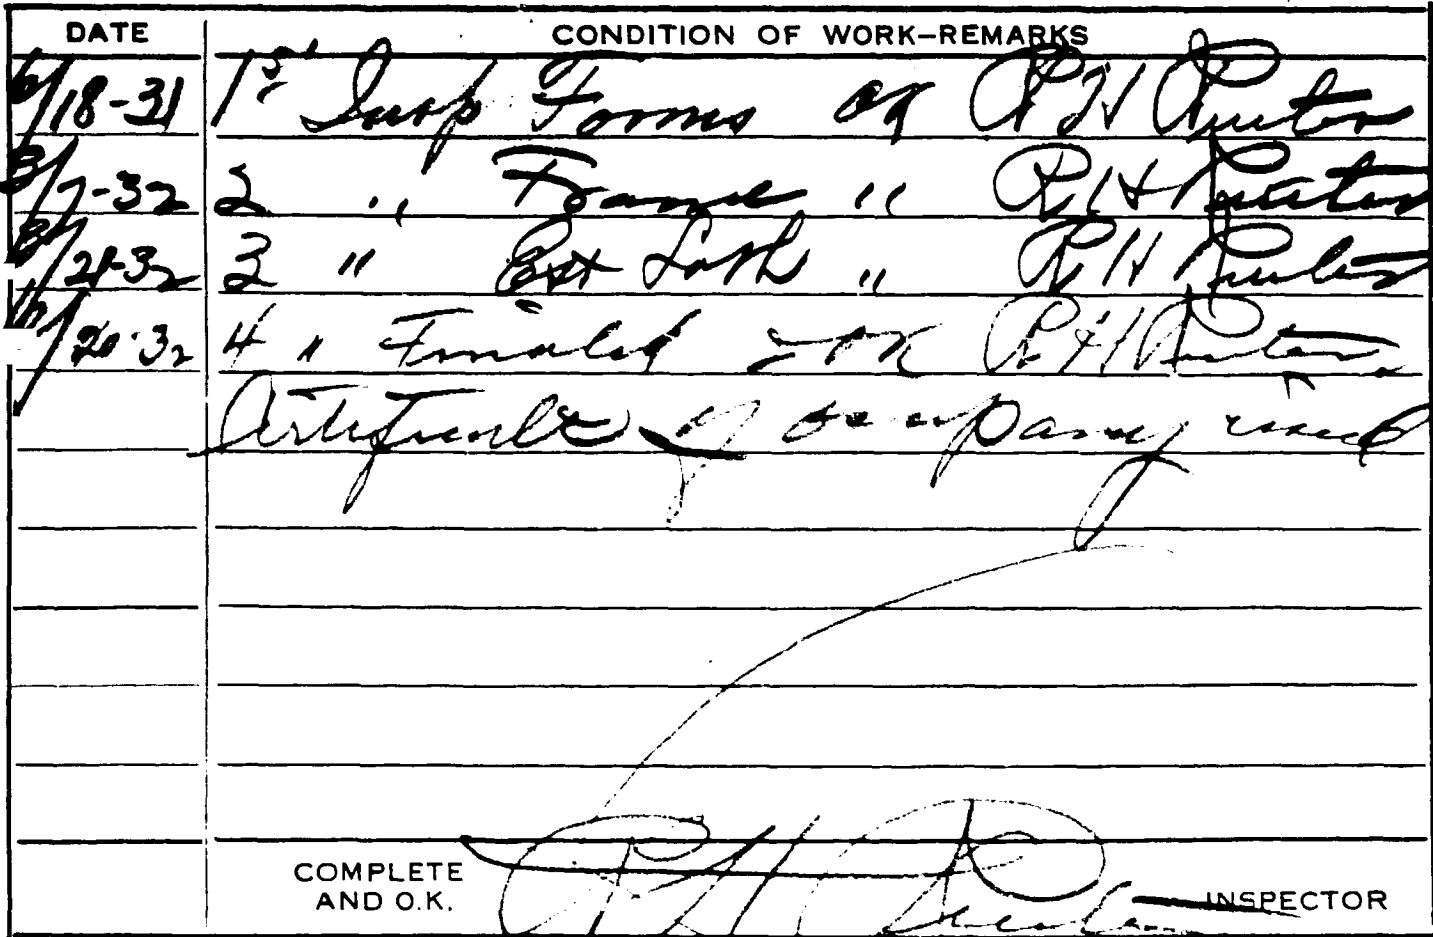 DATE CONDITION OF WORK–REMARKS
/18-31 1st Insp Forms OK R H
3/7-32 2 " Frame " R H
3/21-32 3 " Ext Lath " R H
/20-32 4 " Finaled OK R H
Certificate of occupancy issued
COMPLETE
AND O.K. R H INSPECTOR